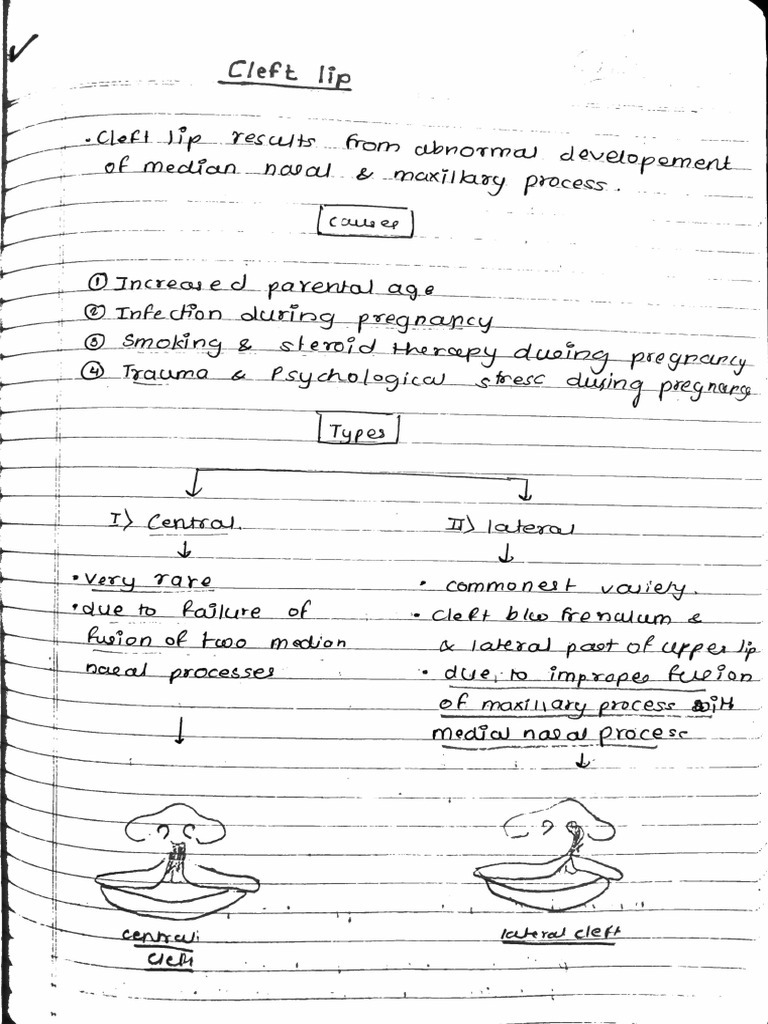 Cleft lip
• Cleft lip results from abnormal developement
of median nasal & maxillary process.
Causes
① Increased parental age
② Infection during pregnancy
③ Smoking & steroid therapy during pregnancy
④ Trauma & Psychological stress during pregnancy
Types
I) Central.
II) lateral
• very rare
• due to failure of
fusion of two median
nasal processes
• commonest variety.
• cleft b/w frenulum &
& lateral part of upper lip
• due to improper fusion
of maxillary process with
medial nasal process
central
cleft
lateral cleft